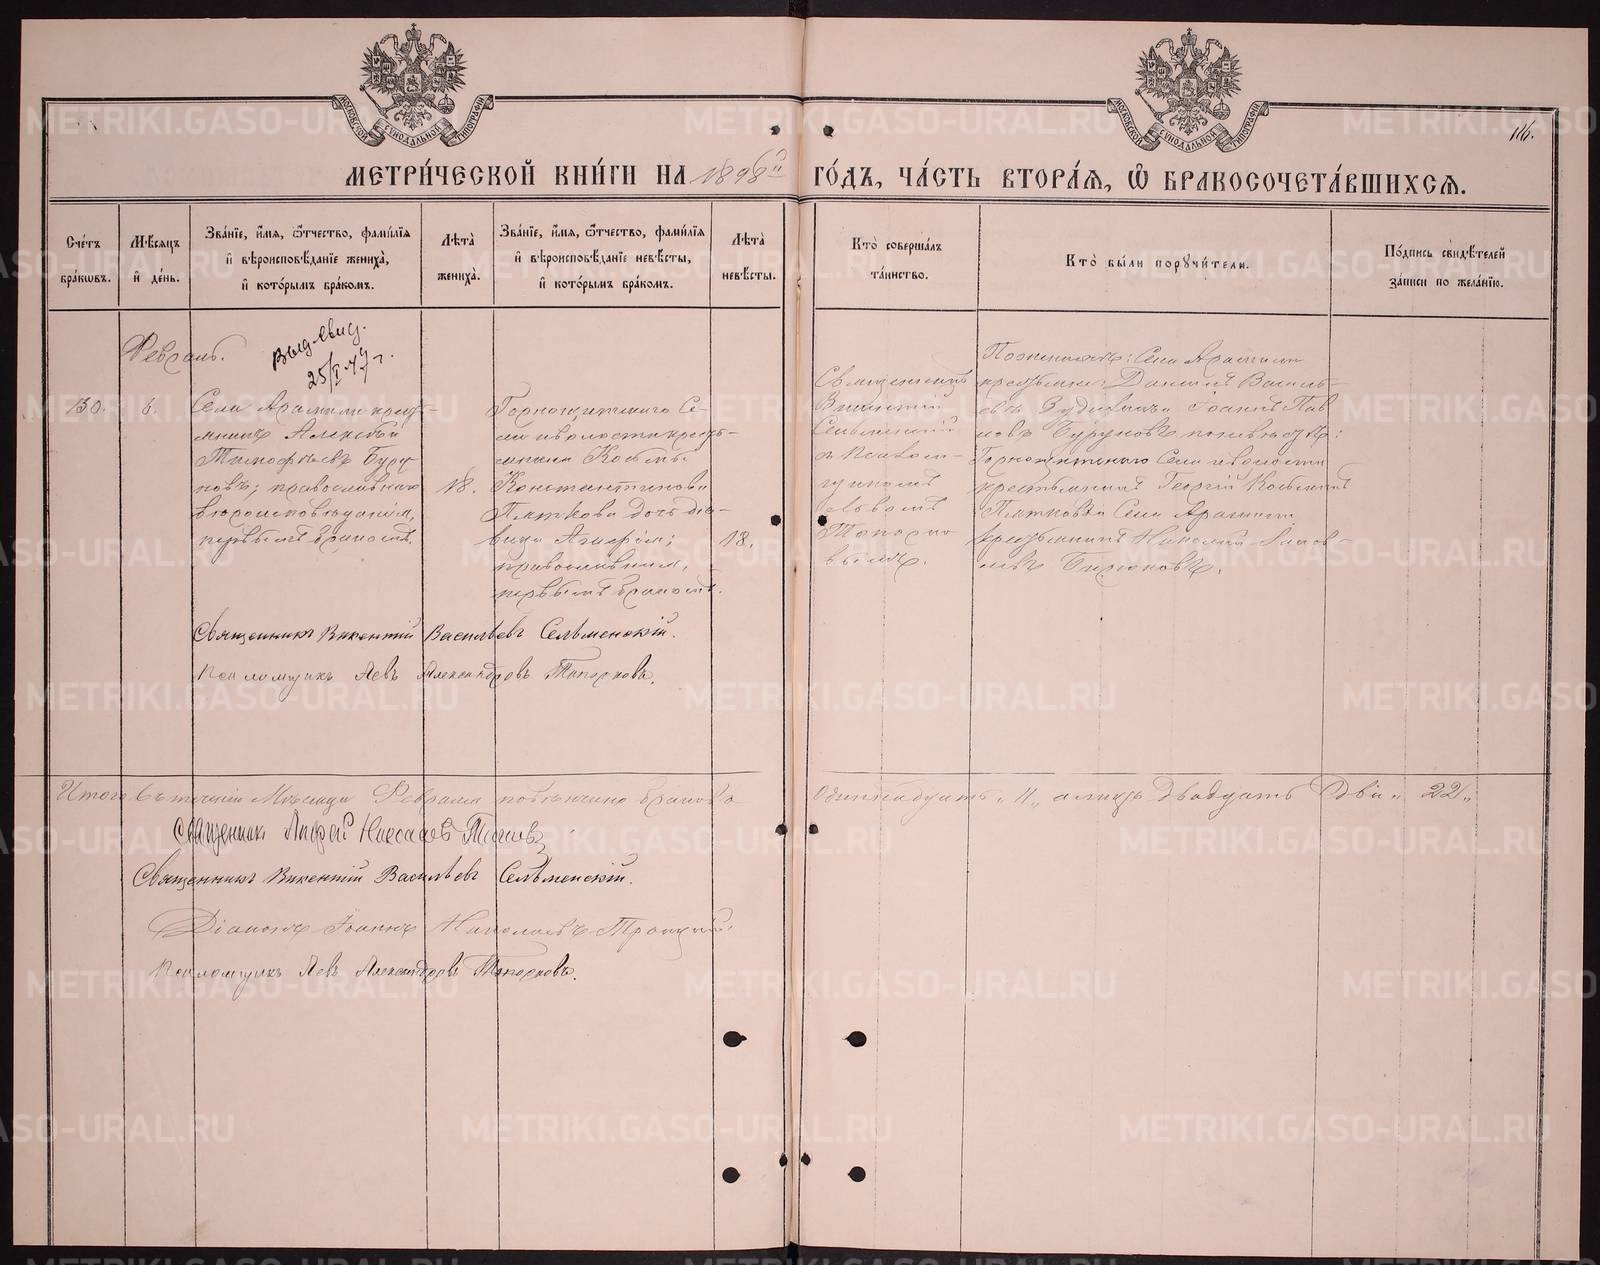 МОСКОВСКОЙ СѴНОДАЛЬНОЙ ТИПОГРАФІИ
МОСКОВСКОЙ СѴНОДАЛЬНОЙ ТИПОГРАФІИ
МЕТРИ́ЧЕСКОЙ КНИ́ГИ НА 1896й ГО́ДЪ, ЧА́СТЬ ВТОРА́Ѧ, Ѡ БРАКОСОЧЕТА́ВШИХСѦ.
Сче́тъ бра́кѡвъ.
Мѣ́сяцъ и҆ де́нь.
Зва́нїе, и҆́мѧ, ѻ҆́тчество, фами́лїѧ и҆ вѣроисповѣ́данїе жениха̀, и҆ кото́рымъ бра́комъ.
Лѣ́та жениха̀.
Зва́нїе, и҆́мѧ, ѻ҆́тчество, фами́лїѧ и҆ вѣроисповѣ́данїе невѣ́сты, и҆ кото́рымъ бра́комъ.
Лѣ́та невѣ́сты.
Кто̀ соверша́лъ та́инство.
Кто̀ бы́ли порꙋчи́тели.
По́дпись свидѣ́телей за́писи по жела́нїю.
Февраль.
Выд. свид.
25/I 47 г.
6.
Села Арамили кресть-
янинъ Алексѣй
Тимофѣевъ Буру
новъ; православнаго
вѣроисповѣданія,
первымъ бракомъ.
18.
Горнощитскаго Се-
ла и волости кресть-
янина Косьмы
Константинова
Пяткова дочь дѣ-
вица
православная,
первымъ бракомъ.
18.
Священникъ
Викентій
Сельменскій
съ Псалом-
щикомъ
Львомъ
Топорко
вымъ.
По женихѣ: Села Арамили
крестьяне: Даніилъ Василь-
евъ и Іоаннъ Пав
ловъ Буруновъ по невѣстѣ:
Горнощитскаго Села и волости
крестьянинъ Георгій Косьминъ
Пятковъ и Села Арамили
крестьянинъ Николай
Священникъ Викентій Васильевъ Сельменскій.
Псаломщикъ Левъ Александровъ Топорковъ.
Итого въ теченіи Мѣсяца Февраля повѣнчано браковъ Одиннадцать „11„ а лицъ Двадцать Два „22„
Священникъ
Священникъ Викентій Васильевъ Сельменскій.
Діаконъ Іоаннъ Николаевъ Троицкій.
Псаломщикъ Левъ Александровъ Топорковъ.
METRIKI.GASO-URAL.RU